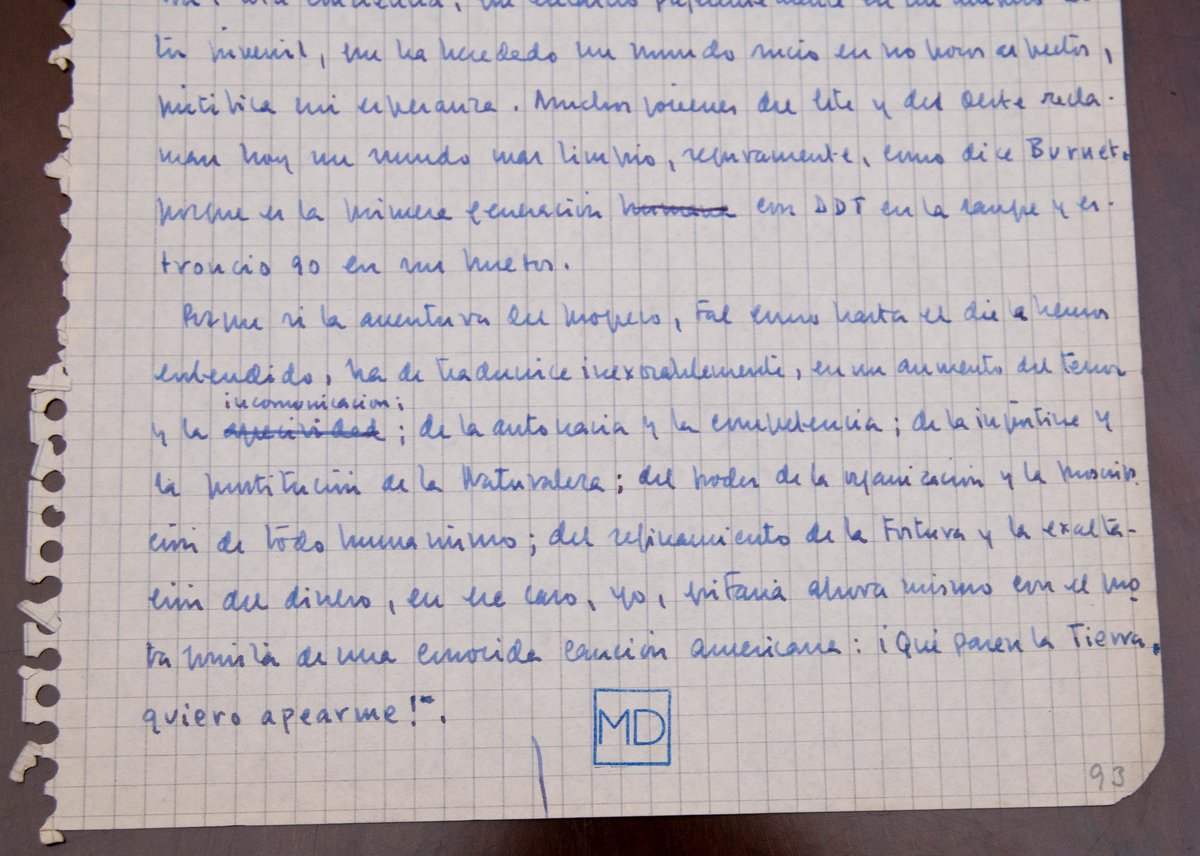 conciencia, que encarno preferentemente en un amplio sec
tor juvenil, que ha heredado un mundo sucio en no pocos aspectos,
justifica mi esperanza. Muchos jóvenes del Este y del Oeste recla-
man hoy un mundo mas limpio, seguramente, como dice Burnet,
porque es la primera generación humana con DDT en la sangre y es-
troncio 90 en sus huesos.
Porque si la aventura del progreso, tal como hasta el dia la hemos
entendido, ha de traducirse inexorablemente, en un aumento del temor
incomunicacion;
y la agresividad; de la autocracia y la competencia; de la injusticia y
la prostitución de la Naturaleza; del poder de la organización y la proscrip-
ción de todo humanismo; del refinamiento de la tortura y la exalta-
ción del dinero, en ese caso, yo, gritaría ahora mismo con el pro
tagonista de una conocida canción americana: ¡Qué paren la Tierra,
quiero apearme!".
MD
93